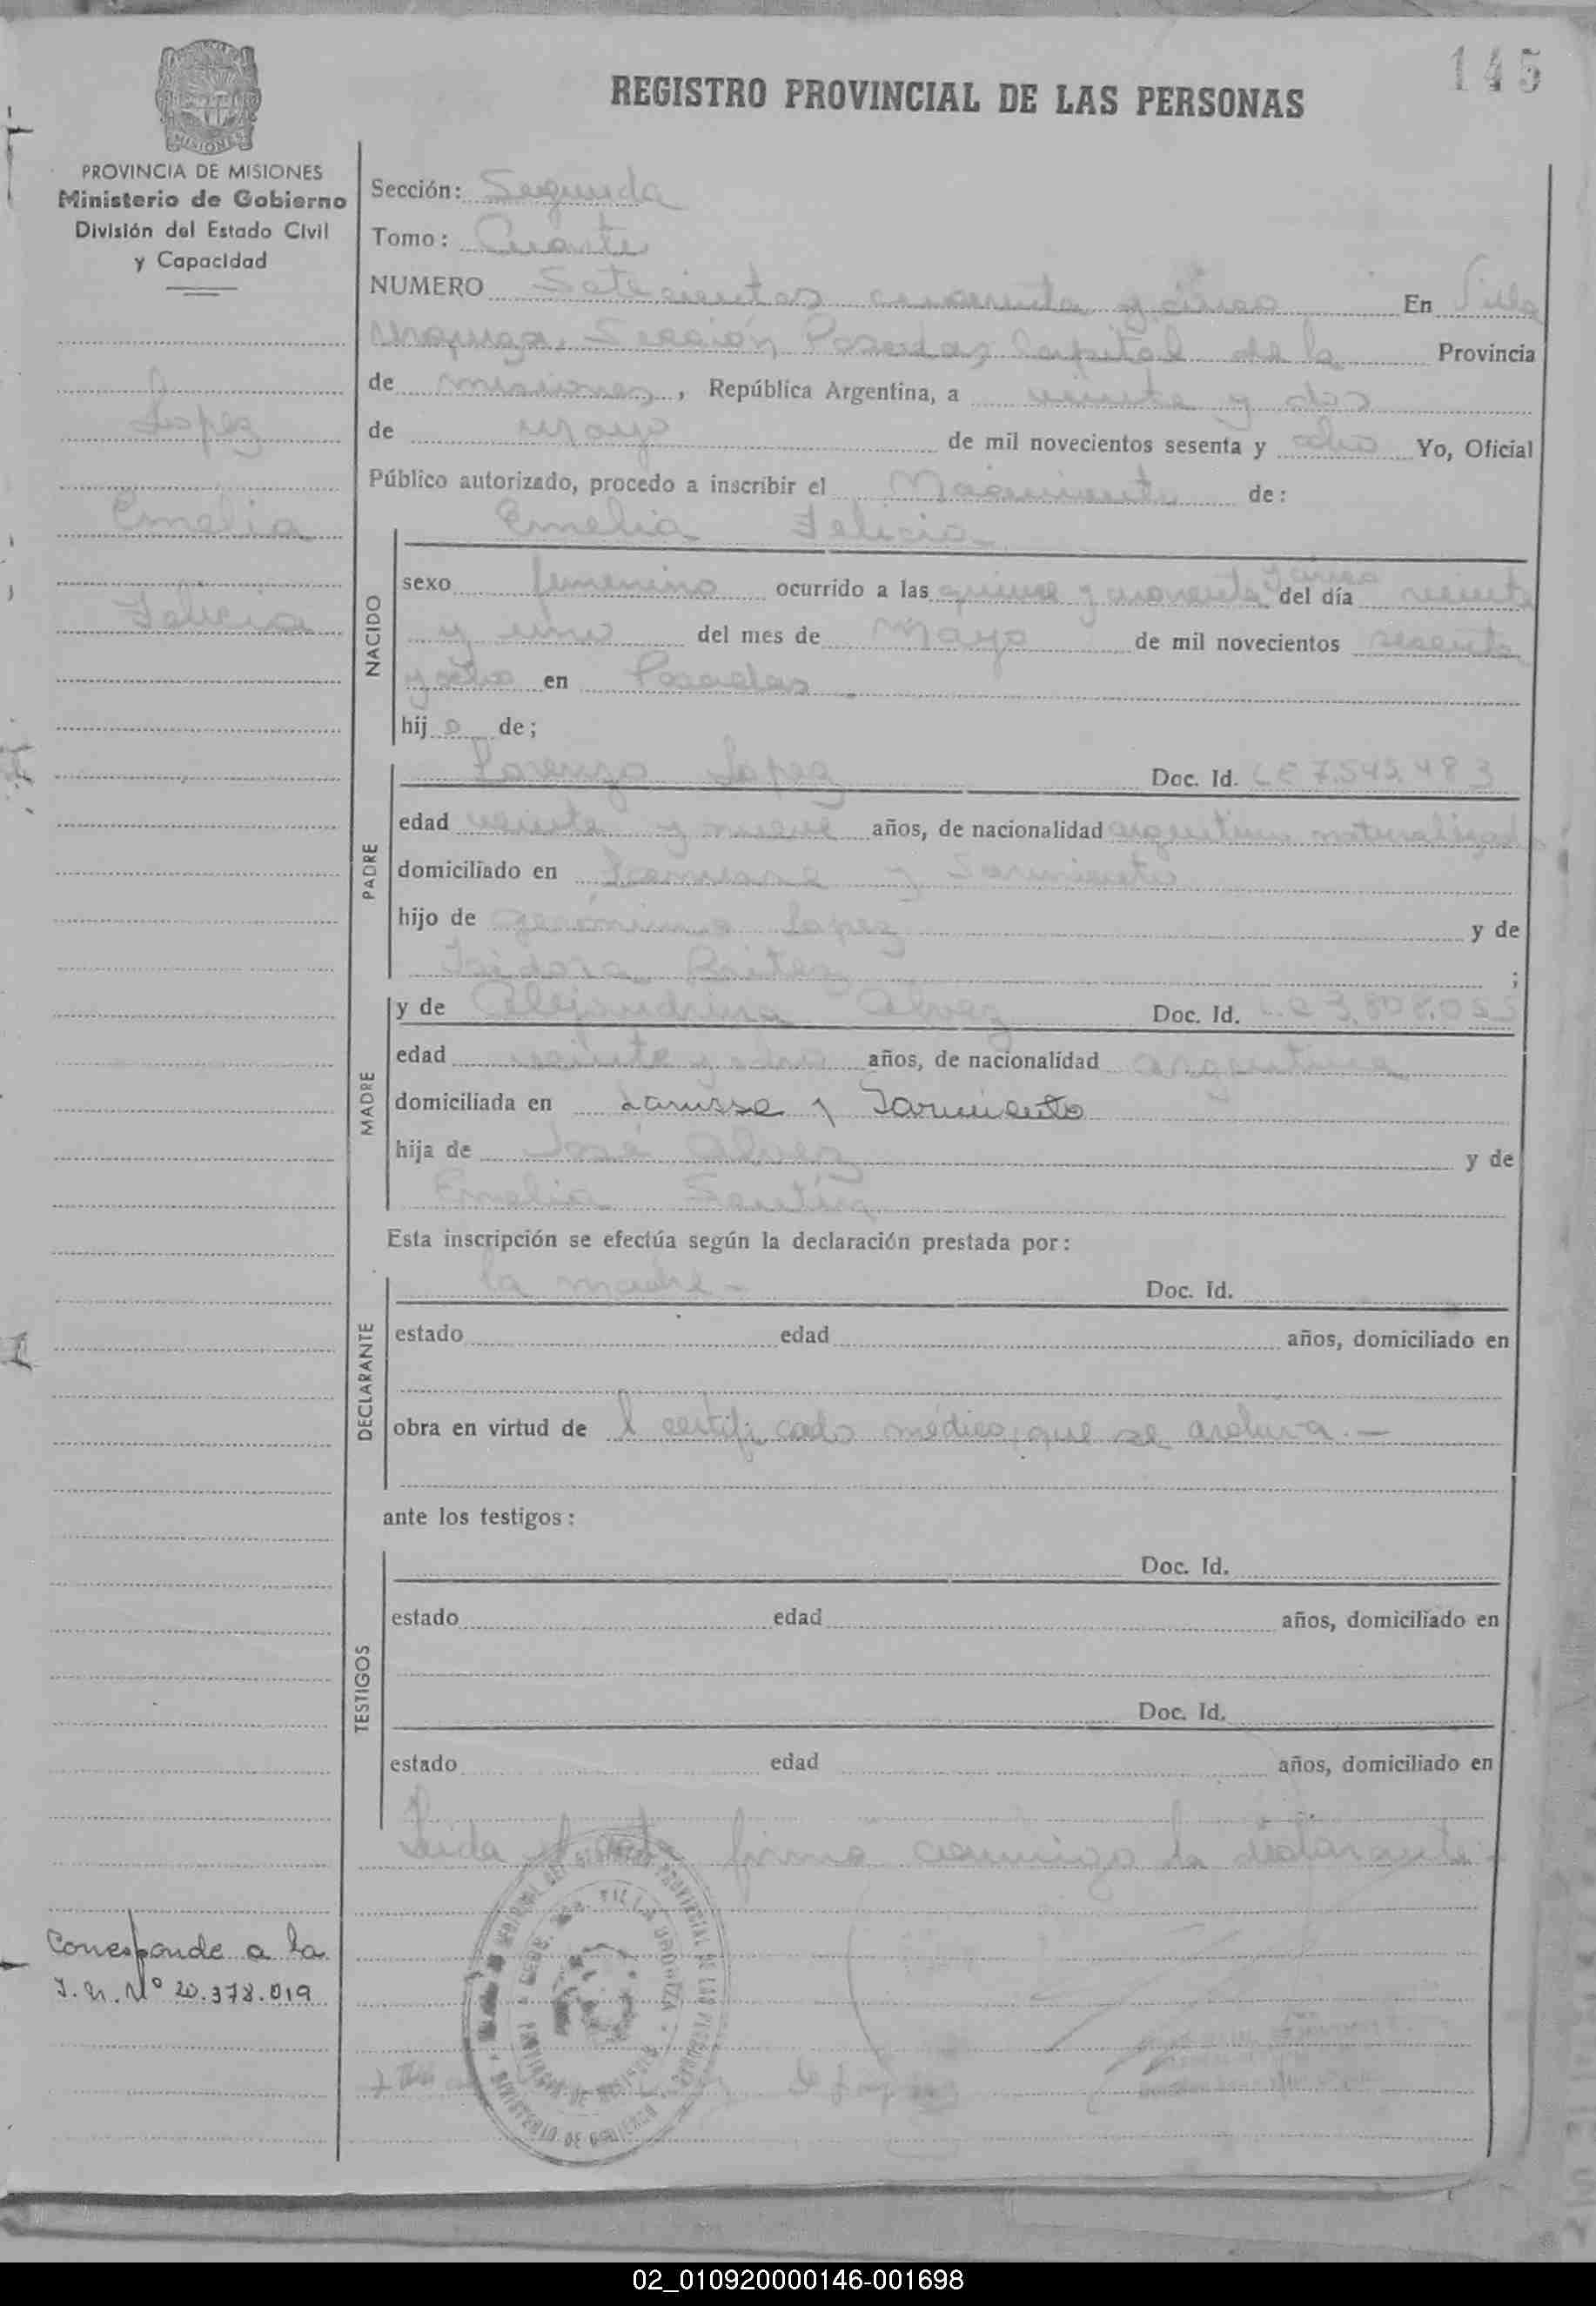 145
REGISTRO PROVINCIAL DE LAS PERSONAS
MISIONES
PROVINCIA DE MISIONES
Ministerio de Gobierno
División del Estado Civil
y Capacidad
Lopez
Emelia
Felicia
Sección: Segunda
Tomo: Cuarto
NUMERO Setecientos cuarenta y cinco En Villa
Urquiza, Sección Posadas, Capital de la Provincia
de misiones, República Argentina, a veinte y dos
de mayo de mil novecientos sesenta y ocho Yo, Oficial
Público autorizado, procedo a inscribir el Nacimiento de:
NACIDO
Emelia Felicia
sexo femenino ocurrido a las quince y cuarenta y cinco del día veinte
y uno del mes de Mayo de mil novecientos sesenta
y ocho en Posadas.
hija de;
PADRE
Lorenzo Lopez Doc. Id. LE 7.545.483
edad veinte y nueve años, de nacionalidad argentino naturalizado
domiciliado en y Sarmiento
hijo de Gerónimo Lopez y de
Isidora Britez ;
MADRE
y de Alejandrina Alvez Doc. Id. L.C 3.808.023
edad veinte y ocho años, de nacionalidad argentina
domiciliada en Lanusse y Sarmiento
hija de José Alvez y de
Emelia
Esta inscripción se efectúa según la declaración prestada por:
DECLARANTE
la madre - Doc. Id.
estado edad años, domiciliado en
obra en virtud de l certificado médico, que se archiva.-
ante los testigos:
TESTIGOS
Doc. Id.
estado edad años, domiciliado en
Doc. Id.
estado edad años, domiciliado en
Leida el acta firma conmigo la declarante.
Corresponde a la
I.N. Nº 20.378.019
PROVINCIAL DE LAS PERSONAS
VILLA URQUIZA
PROVINCIA DE MISIONES
MINISTERIO DE GOBIERNO
02_010920000146-001698